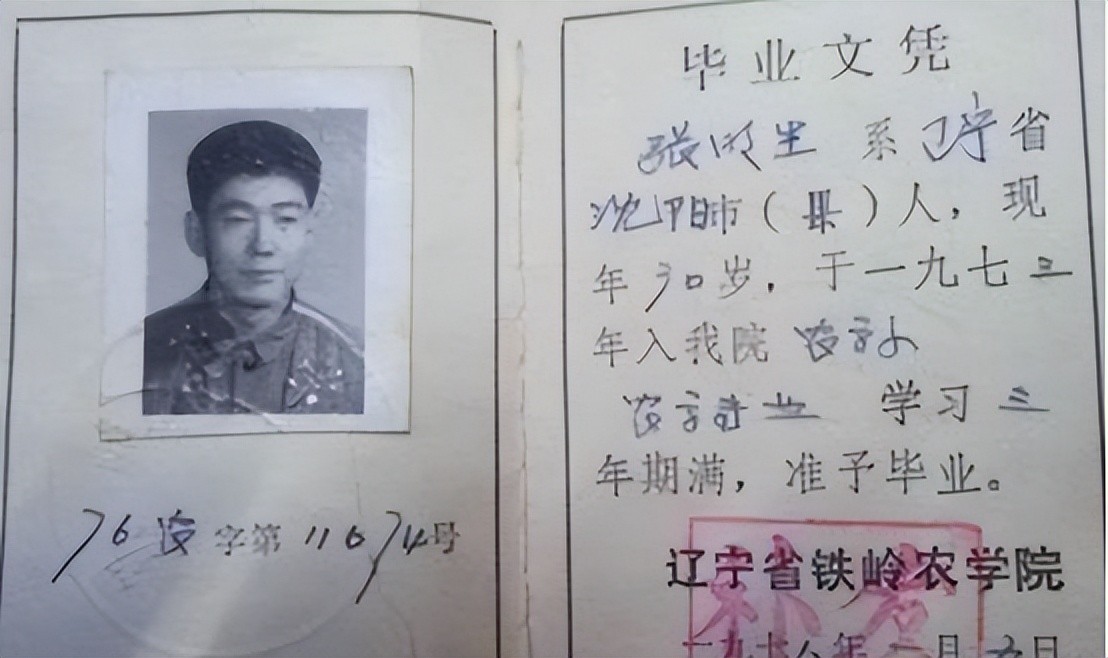 76 农 字第 11674号
毕业文凭
张明生 系 辽宁省
沈阳市（县）人，现
年 30岁，于一九七三
年入我院 农
业 学习 三
年期满，准予毕业。
辽宁省铁岭农学院
一九七六年 月 日